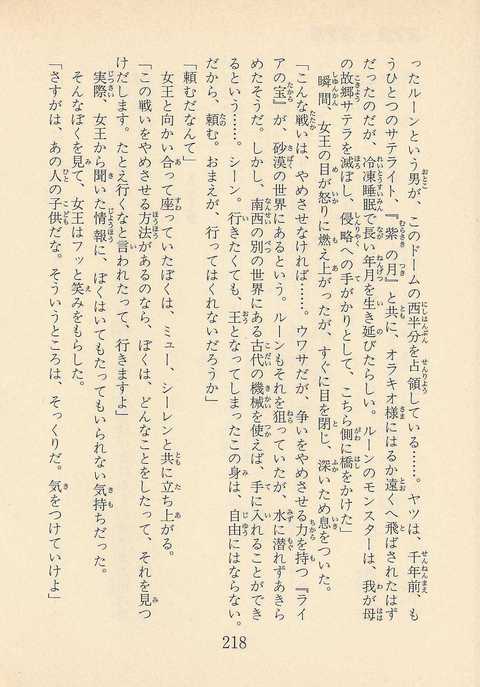 ったルーンという男が、このドームの西半分を占領している……。ヤツは、千年前、も
うひとつのサテライト、『紫の月』と共に、オラキオ様にはるか遠くへ飛ばされたはず
だったのだが、冷凍睡眠で長い年月を生き延びたらしい。ルーンのモンスターは、我が母
の故郷サテラを滅ぼし、侵略への手がかりとして、こちら側に橋をかけた」
瞬間、女王の目が怒りに燃え上がったが、すぐに目を閉じ、深いため息をついた。
「こんな戦いは、やめさせなければ……。ウワサだが、争いをやめさせる力を持つ『ライ
アの宝』が、砂漠の世界にあるという。ルーンもそれを狙っていたが、水に潜れずあきら
めたそうだ。しかし、南西の別の世界にある古代の機械を使えば、手に入れることができ
るという……。シーン。行きたくても、王となってしまったこの身は、自由にはならない。
だから、頼む。おまえが、行ってはくれないだろうか」
「頼むだなんて」
女王と向かい合って座っていたぼくは、ミュー、シーレンと共に立ち上がる。
「この戦いをやめさせる方法があるのなら、ぼくは、どんなことをしたって、それを見つ
けだします。たとえ行くなと言われたって、行きますよ」
実際、女王から聞いた情報に、ぼくはいてもたってもいられない気持ちだった。
そんなぼくを見て、女王はフッと笑みをもらした。
「さすがは、あの人の子供だな。そういうところは、そっくりだ。気をつけていけよ」
218